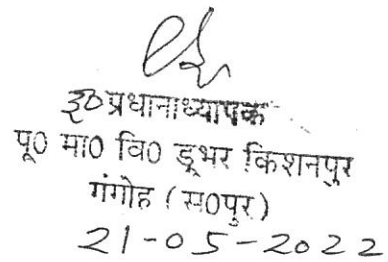 इ० प्रधानाध्यापक
पू० मा० वि० डूभर किशनपुर
गंगोह (स०पुर)
21-05-2022